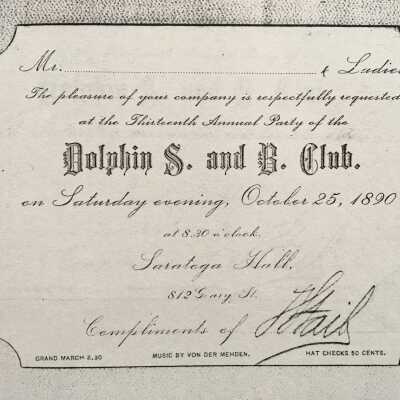 Mr. & Ladies
The pleasure of your company is respectfully requested
at the Thirteenth Annual Party of the
Dolphin S. and B. Club.
on Saturday evening, October 25, 1890
at 8.30 o'clock.
Saratoga Hall,
812 Geary St.
Compliments of
GRAND MARCH 8.30 MUSIC BY VON DER MEHDEN. HAT CHECKS 50 CENTS.